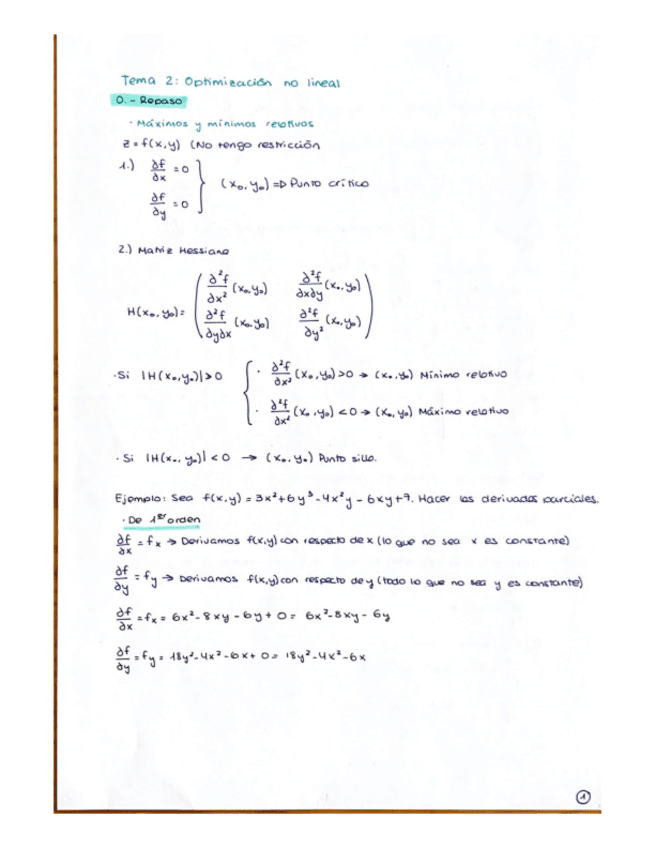 Tema 2: Optimización no lineal
0.- Repaso
· Máximos y mínimos relativos
z = f(x,y) (No tengo restricción
1.) ∂f/∂x = 0
∂f/∂y = 0 } (x₀, y₀) => Punto crítico
2.) Matriz Hessiana
H(x₀, y₀) = ( ∂²f/∂x² (x₀,y₀) ∂²f/∂x∂y (x₀,y₀)
∂²f/∂y∂x (x₀,y₀) ∂²f/∂y² (x₀,y₀) )
· Si |H(x₀,y₀)| > 0 { · ∂²f/∂x² (x₀,y₀) > 0 → (x₀,y₀) Mínimo relativo
· ∂²f/∂x² (x₀,y₀) < 0 → (x₀,y₀) Máximo relativo
· Si |H(x₀,y₀)| < 0 → (x₀,y₀) Punto silla.
Ejemplo: Sea f(x,y) = 3x²+6y³-4x²y-6xy+7. Hacer las derivadas parciales.
· De 1er orden
∂f/∂x = fx → Derivamos f(x,y) con respecto de x (lo que no sea x es constante)
∂f/∂y = fy → Derivamos f(x,y) con respecto de y (todo lo que no sea y es constante)
∂f/∂x = fx = 6x²-8xy-6y+0 = 6x²-8xy-6y
∂f/∂y = fy = 18y²-4x²-6x+0 = 18y²-4x²-6x
1